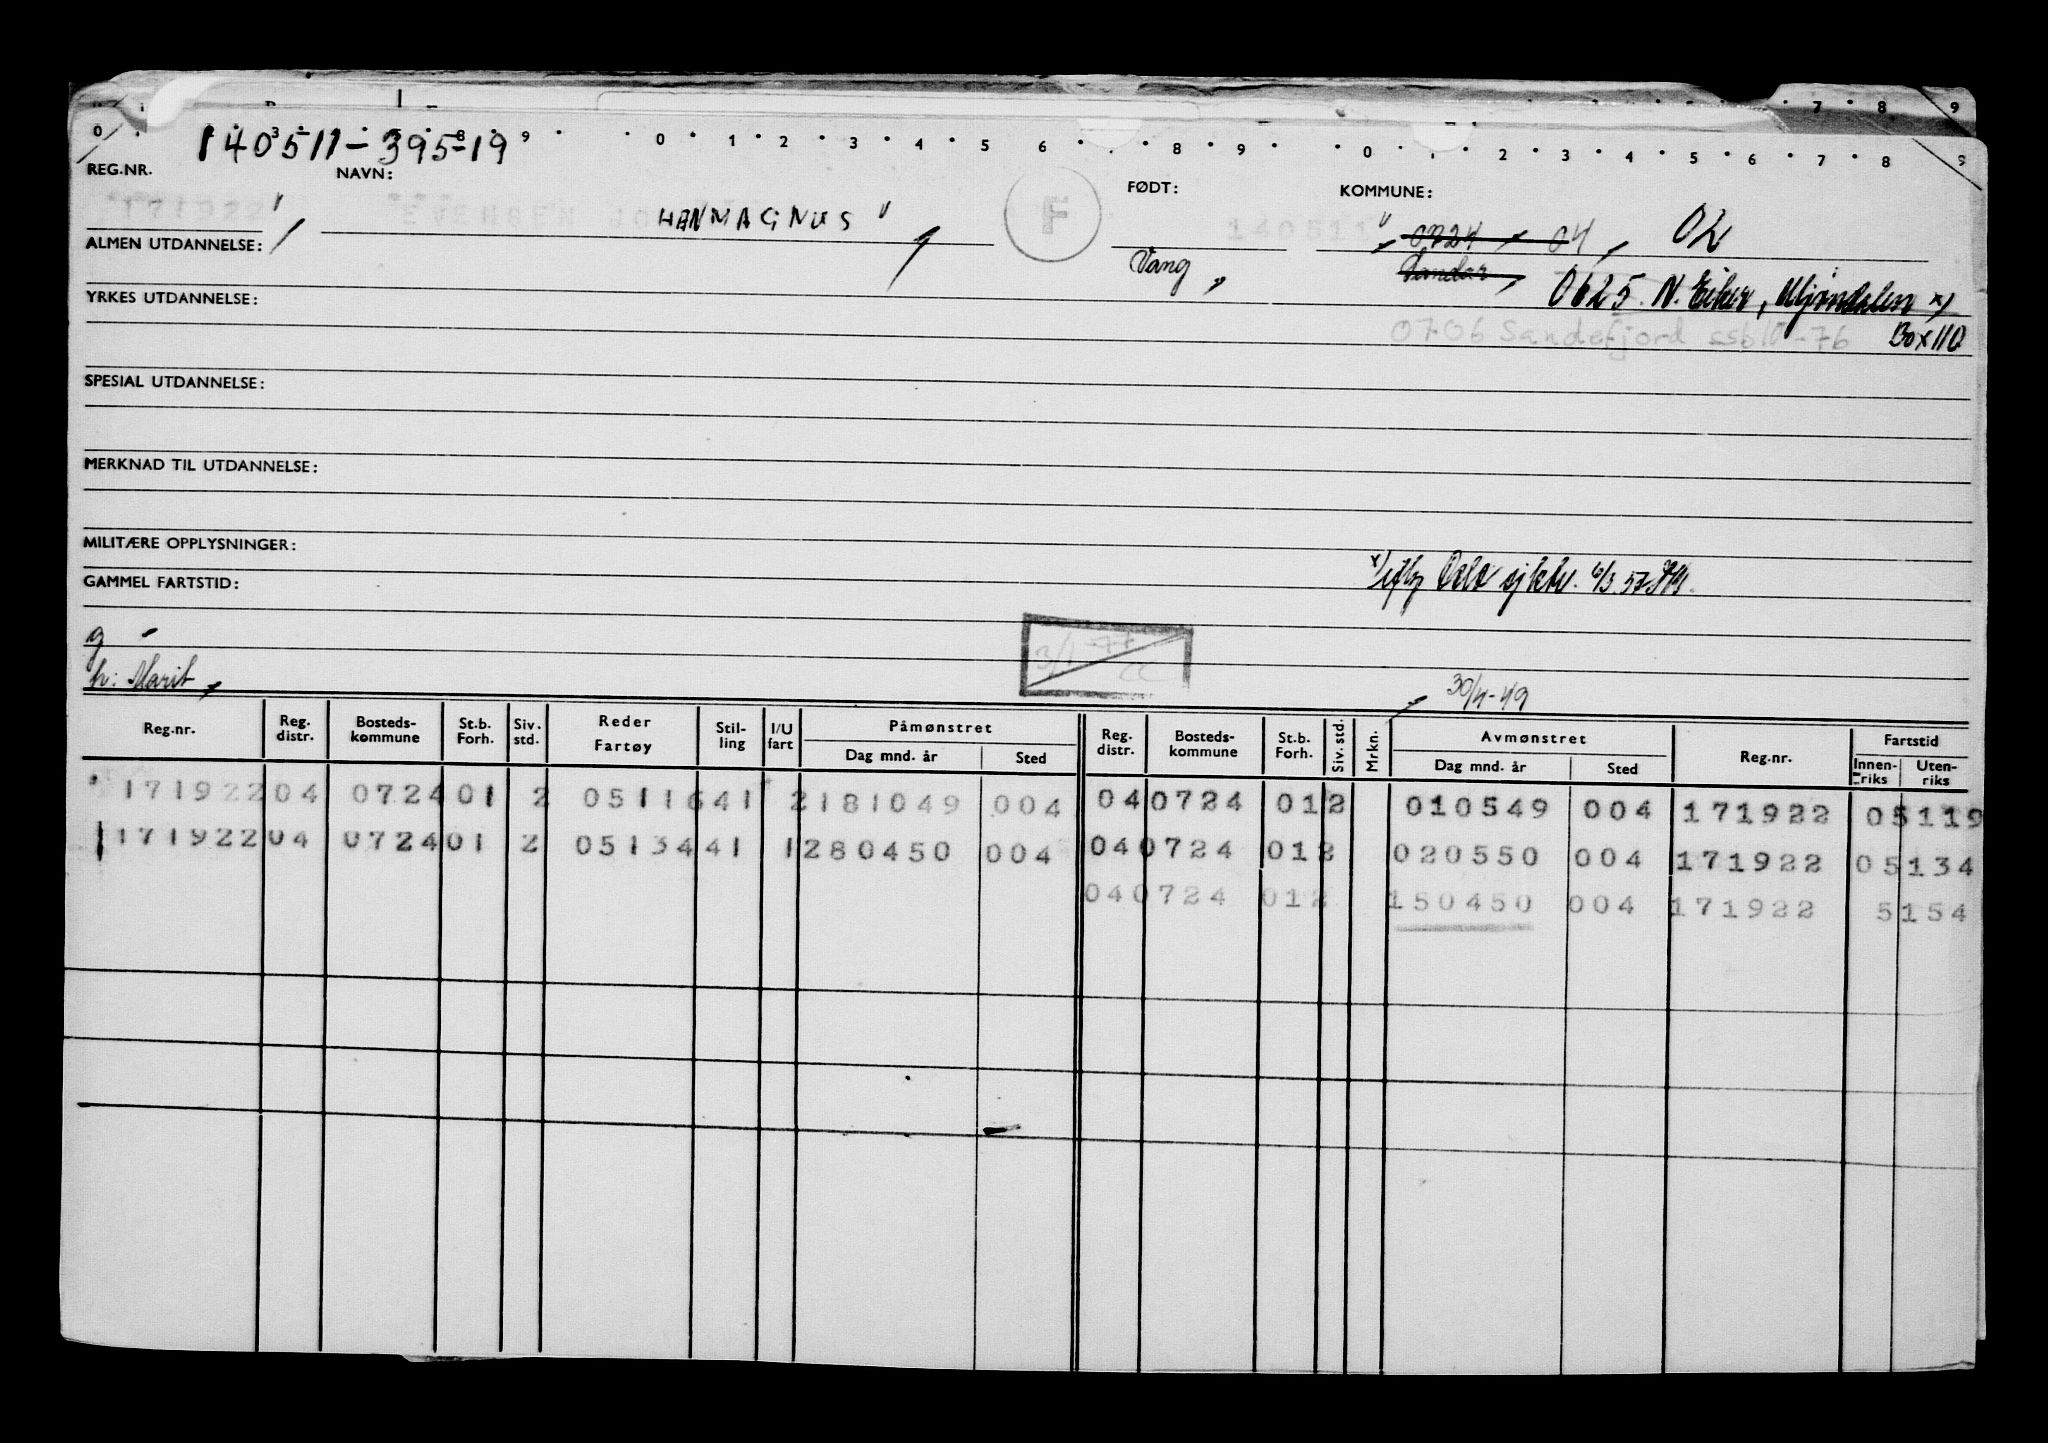 7 8 9
0 3 8 9 0 1 2 3 4 5 6 8 9 0 2 3 4 5 6 7 8 9
140511-39519
REG.NR. NAVN: FØDT: KOMMUNE:
171922 EVENSEN JOHAN MAGNUS F 140511 0724 04 02
ALMEN UTDANNELSE: g Vang Sandar 0625 N. Eiker, Mjøndalen x)
YRKES UTDANNELSE: 0706 Sandefjord ssb 10-76 Box 110
SPESIAL UTDANNELSE:
MERKNAD TIL UTDANNELSE:
MILITÆRE OPPLYSNINGER:
x) iflg Oslo sjktr. 6/3.57
GAMMEL FARTSTID:
g - 3/1-77 CC
h: Marit 30/4-49
Reg.nr. Reg. distr. Bosteds- kommune St.b. Forh. Siv. std. Reder Fartøy Stil- ling I/U fart Påmønstret Dag mnd. år Sted Reg. distr. Bosteds- kommune St.b. Forh. Siv. std. Mrkn. Avmønstret Dag mnd. år Sted Reg.nr. Fartstid Innen- riks Uten- riks
171922 04 0724 01 2 05116 41 2 181049 004 04 0724 01 2 010549 004 171922 05119
171922 04 0724 01 2 05134 41 1 280450 004 04 0724 01 2 020550 004 171922 05134
04 0724 01 2 150450 004 171922 5154